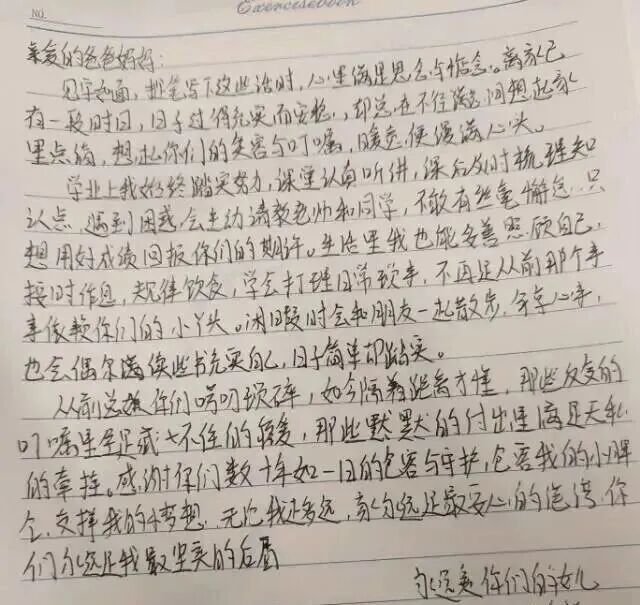 NO.
Exercisebook
亲爱的爸爸妈妈:
见字如面,提笔写下这些话时,心里满是思念与惦念。离家已
有一段时日,日子过得充实而安稳,却总在不经意间想起家
里点滴,想起你们的笑容与叮嘱,暖意便漫满心头。
学业上我始终踏实努力,课堂认真听讲,课后及时梳理知
识点,遇到困惑会主动请教老师和同学,不敢有丝毫懈怠,只
想用好成绩回报你们的期许。生活里我也能妥善照顾自己,
按时作息,规律饮食,学会打理日常琐事,不再是从前那个事
事依赖你们的小丫头。闲暇时会和朋友一起散步,分享心事,
也会偶尔读些书充实自己,日子简单却踏实。
从前总嫌你们唠叨琐碎,如今隔着距离才懂,那些反复的
叮嘱里全是藏不住的疼爱,那些默默的付出里满是无私
的牵挂。感谢你们数十年如一日的包容与守护,包容我的小脾
气,支撑我的梦想,无论我走多远,家永远是最安心的港湾,你
们永远是我最坚实的后盾
永远爱你们的女儿